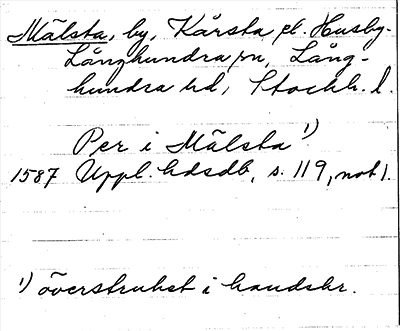 Mälsta, by, Kårsta pl. Husby-
Långhundra sn, Lång-
hundra hd, Stockh. l.
Per i Mälsta ¹)
1587 Uppl. hdsdb, s. 119, not 1.
¹) överstruket i handskr.